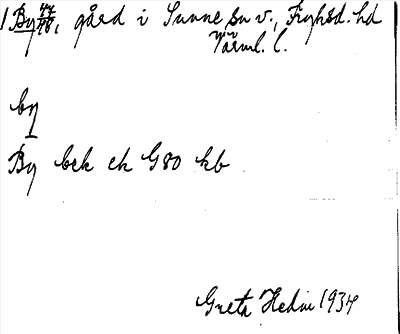 1 By, gård i Sunne sn v., Fryksd. hd
Värml. l.
by
By bek ek G80 kb
Greta Hedin 1934